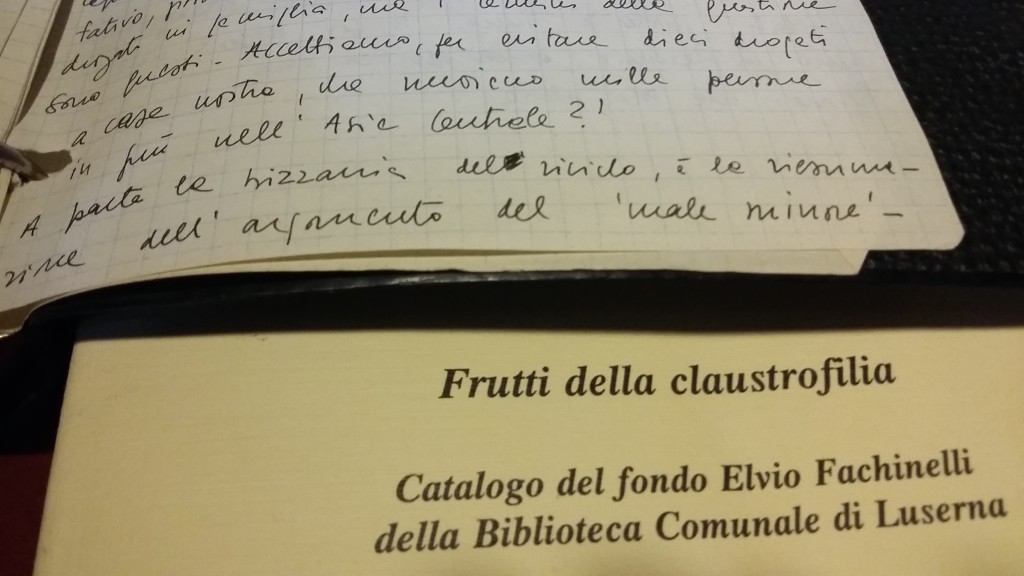 tativo,
drogati in famiglia, ma i termini della questione
sono questi - Accettiamo, per evitare dieci drogati
a casa nostra, che muoiano mille persone
in più nell'Asia Centrale?!
A parte la bizzarria del, è la riesuma-
zione dell'argomento del 'male minore' -
Frutti della claustrofilia
Catalogo del fondo Elvio Fachinelli
della Biblioteca Comunale di Luserna